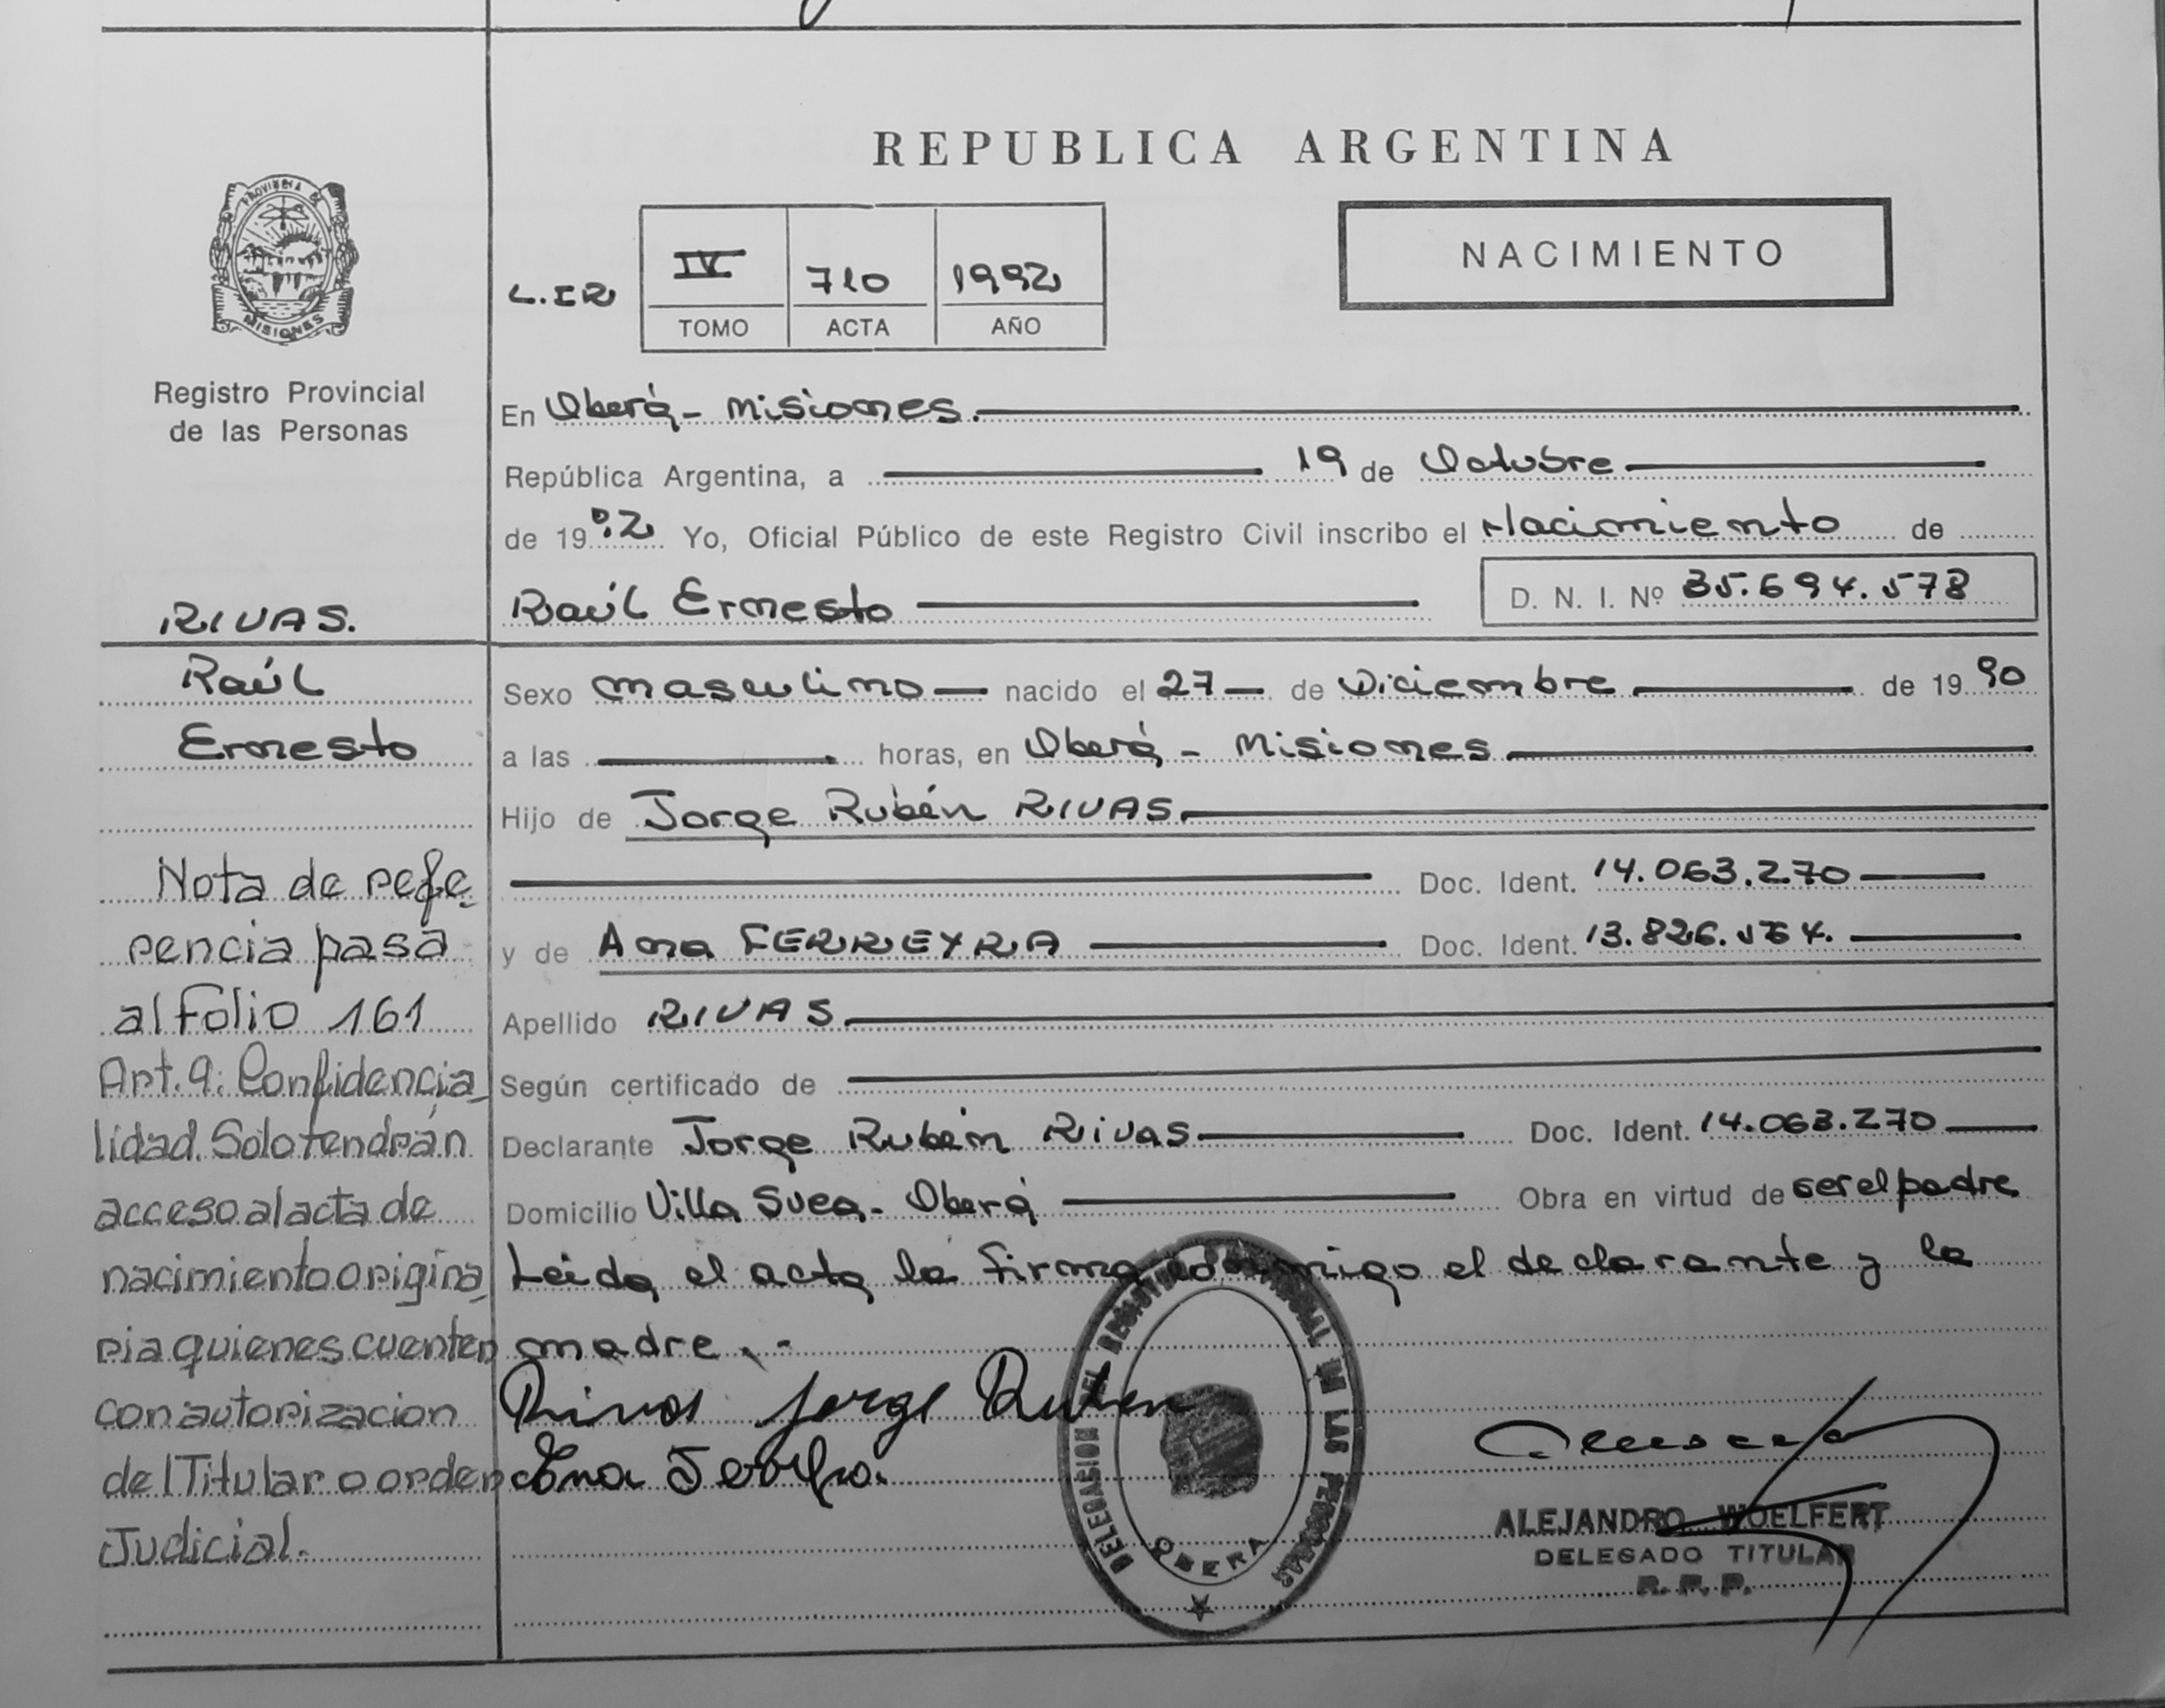 REPUBLICA ARGENTINA
PROVINCIA DE
MISIONES
Registro Provincial
de las Personas
L.IR
IV 710 1992
TOMO ACTA AÑO
NACIMIENTO
En Oberá - Misiones.
República Argentina, a 19 de Octubre
de 1992 Yo, Oficial Público de este Registro Civil inscribo el Nacimiento de
Raúl Ernesto D. N. I. Nº 35.694.578
RIVAS.
Raúl
Ernesto
Nota de refe
rencia pasa
al Folio 161
Art. 9: Confidencia
lidad. Solo tendrán
acceso al acta de
nacimiento origina
ria quienes cuenten
con autorizacion
del Titular o orden
Judicial.
Sexo masculino nacido el 27 de Diciembre de 1990
a las horas, en Oberá - Misiones
Hijo de Jorge Rubén RIVAS
Doc. Ident. 14.063.270
y de Ana FERREYRA Doc. Ident. 13.826.
Apellido RIVAS
Según certificado de
Declarante Jorge Rubén Rivas Doc. Ident. 14.063.270
Domicilio Villa Svea - Oberá Obra en virtud de ser el padre
Leida el acta la firma conmigo el declarante y la
madre. -
Rivas Jorge Ruben
Ana
DELEGACION DEL REGISTRO PROVINCIAL DE LAS PERSONAS
OBERA
ALEJANDRO WOELFERT
DELEGADO TITULAR
R. P. P.